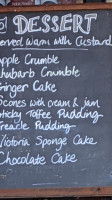 DESSERT
served warm with Custard
Apple Crumble
Rhubarb Crumble
Ginger Cake
Scones with cream & jam
Sticky Toffee Pudding
Treacle Pudding
Victoria Sponge Cake
Chocolate Cake